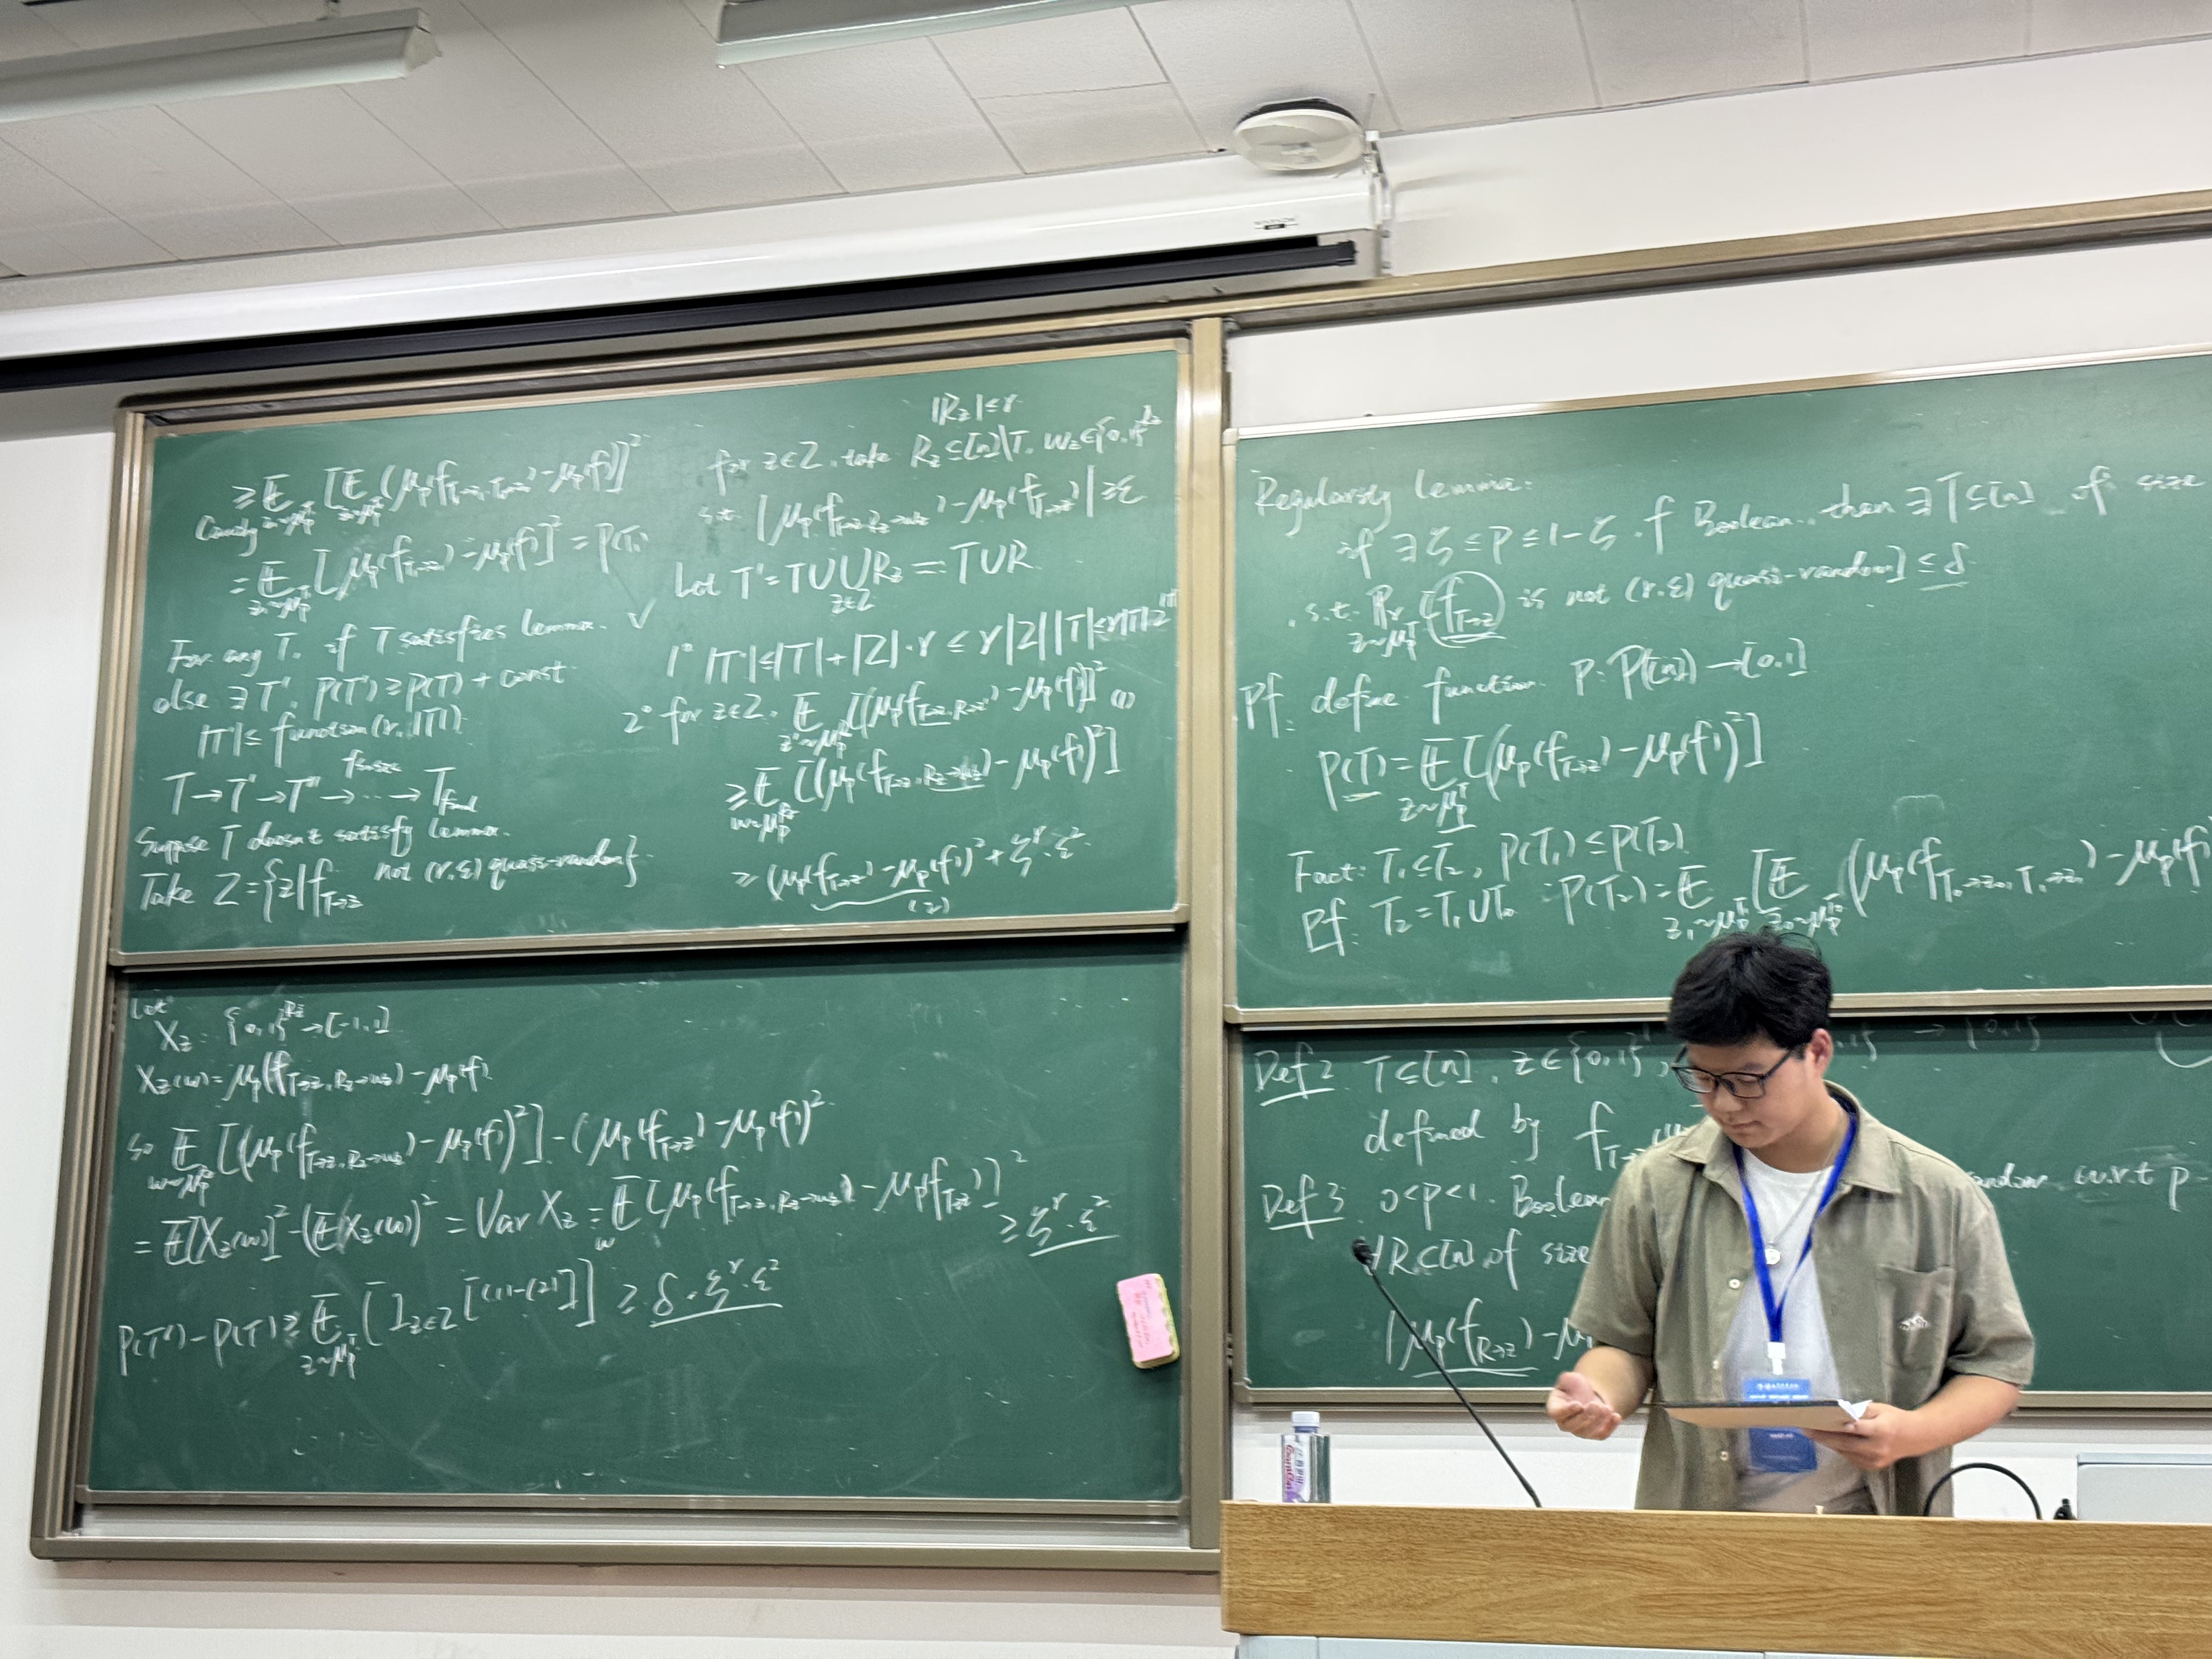 ≥ 𝔼_{z₁~μ_p^{T₁}} [𝔼_{z₀~μ_p^{T₀}} (μ_p(f_{T₁→z₁, T₀→z₀}) - μ_p(f))]²
= 𝔼_{z₁~μ_p^{T₁}} [μ_p(f_{T₁→z₁}) - μ_p(f)]² = P(T₁)
For any T, if T satisfies lemma. ✓
else ∃T', P(T') ≥ P(T) + const
|T'| ≤ function(r, |T|)
T→T'→T''→ ⋯ →T_{final}
Suppose T doesn't satisfy lemma.
Take Z = {z | f_{T→z} not (r,ε) quasi-random}
|R_z| ≤ r
for z∈Z, take R_z ⊆ [n]\T, w_z ∈ {0,1}^{R_z}
s.t. |μ_p(f_{T→z, R_z→w_z}) - μ_p(f_{T→z})| ≥ ε
Let T' = T∪⋃_{z∈Z} R_z =: T∪R
1° |T'| ≤ |T| + |Z|·r ≤ r|Z||T| ≤ r|T|2^{|T|}
2° for z∈Z, 𝔼 [(μ_p(f_{T→z, R→z'}) - μ_p(f))]² (1)
≥ 𝔼_{w~μ_p^{R_z}} [(μ_p(f_{T→z, R_z→w_z}) - μ_p(f))²]
≥ (μ_p(f_{T→z}) - μ_p(f))² + ζ^r·ε²
(2)
Let
X_z: {0,1}^{R_z} → [-1,1]
X_z(w) = μ_p(f_{T→z, R_z→w_z}) - μ_p(f)
so 𝔼_{w~μ_p^{R_z}} [(μ_p(f_{T→z, R_z→w_z}) - μ_p(f))²] - (μ_p(f_{T→z}) - μ_p(f))²
= 𝔼[X_z(w)]² - (𝔼(X_z(w))² = Var X_z = 𝔼_w [μ_p(f_{T→z, R_z→w_z}) - μ_p(f_{T→z})]²
≥ ζ^r·ε²
P(T') - P(T) ≥ 𝔼_{z~μ_p^T} [1_{z∈Z} [(1)-(2)]] ≥ δ·ζ^r·ε²
Regularity lemma:
if ∃ ζ ≤ p ≤ 1-ζ, f Boolean, then ∃ T⊆[n] of size
s.t. Pr_{z~μ_p^T} [f_{T→z} is not (r,ε) quasi-random] ≤ δ
Pf: define function P: P([n]) → [0,1]
P(T) = 𝔼_{z~μ_p^T} [(μ_p(f_{T→z}) - μ_p(f))²]
Fact: T₁ ⊆ T₂, P(T₁) ≤ P(T₂)
Pf: T₂ = T₁∪T₀ P(T₂) = 𝔼_{z₁~μ_p^{T₁}} [𝔼_{z₀~μ_p^{T₀}} (μ_p(f_{T₀→z₀, T₁→z₁}) - μ_p(f)
Def 2 T⊆[n], z∈{0,1} → {0,1}
defined by f_{T→z}
Def 3 0<p<1. Boolean w.r.t p
∀R⊂[n] of size
|μ_p(f_{R→z}) - μ